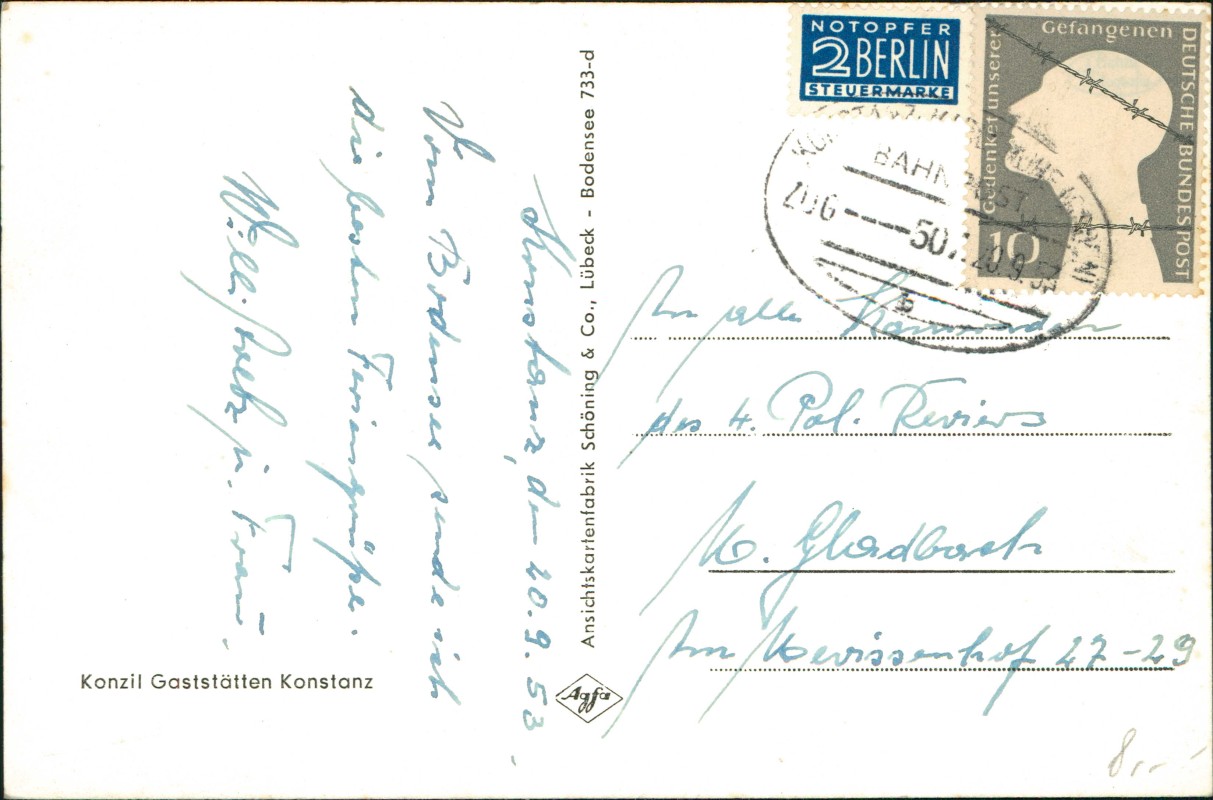 NOTOPFER
2 BERLIN
STEUERMARKE
Gedenket unserer Gefangenen
DEUTSCHE BUNDESPOST
10
BAHNPOST
ZUG
507 20.9.53
b
Konstanz, den 20.9.53.
Vom Bodensee sende ich
die besten Feriengrüße.
Willi u. Frau.
Ansichtskartenfabrik Schöning & Co., Lübeck - Bodensee 733-d
An alle Kameraden
des 4. Pol. Reviers
M. Gladbach
Am Mevissenhof 27-29
Konzil Gaststätten Konstanz
Agfa
8,--